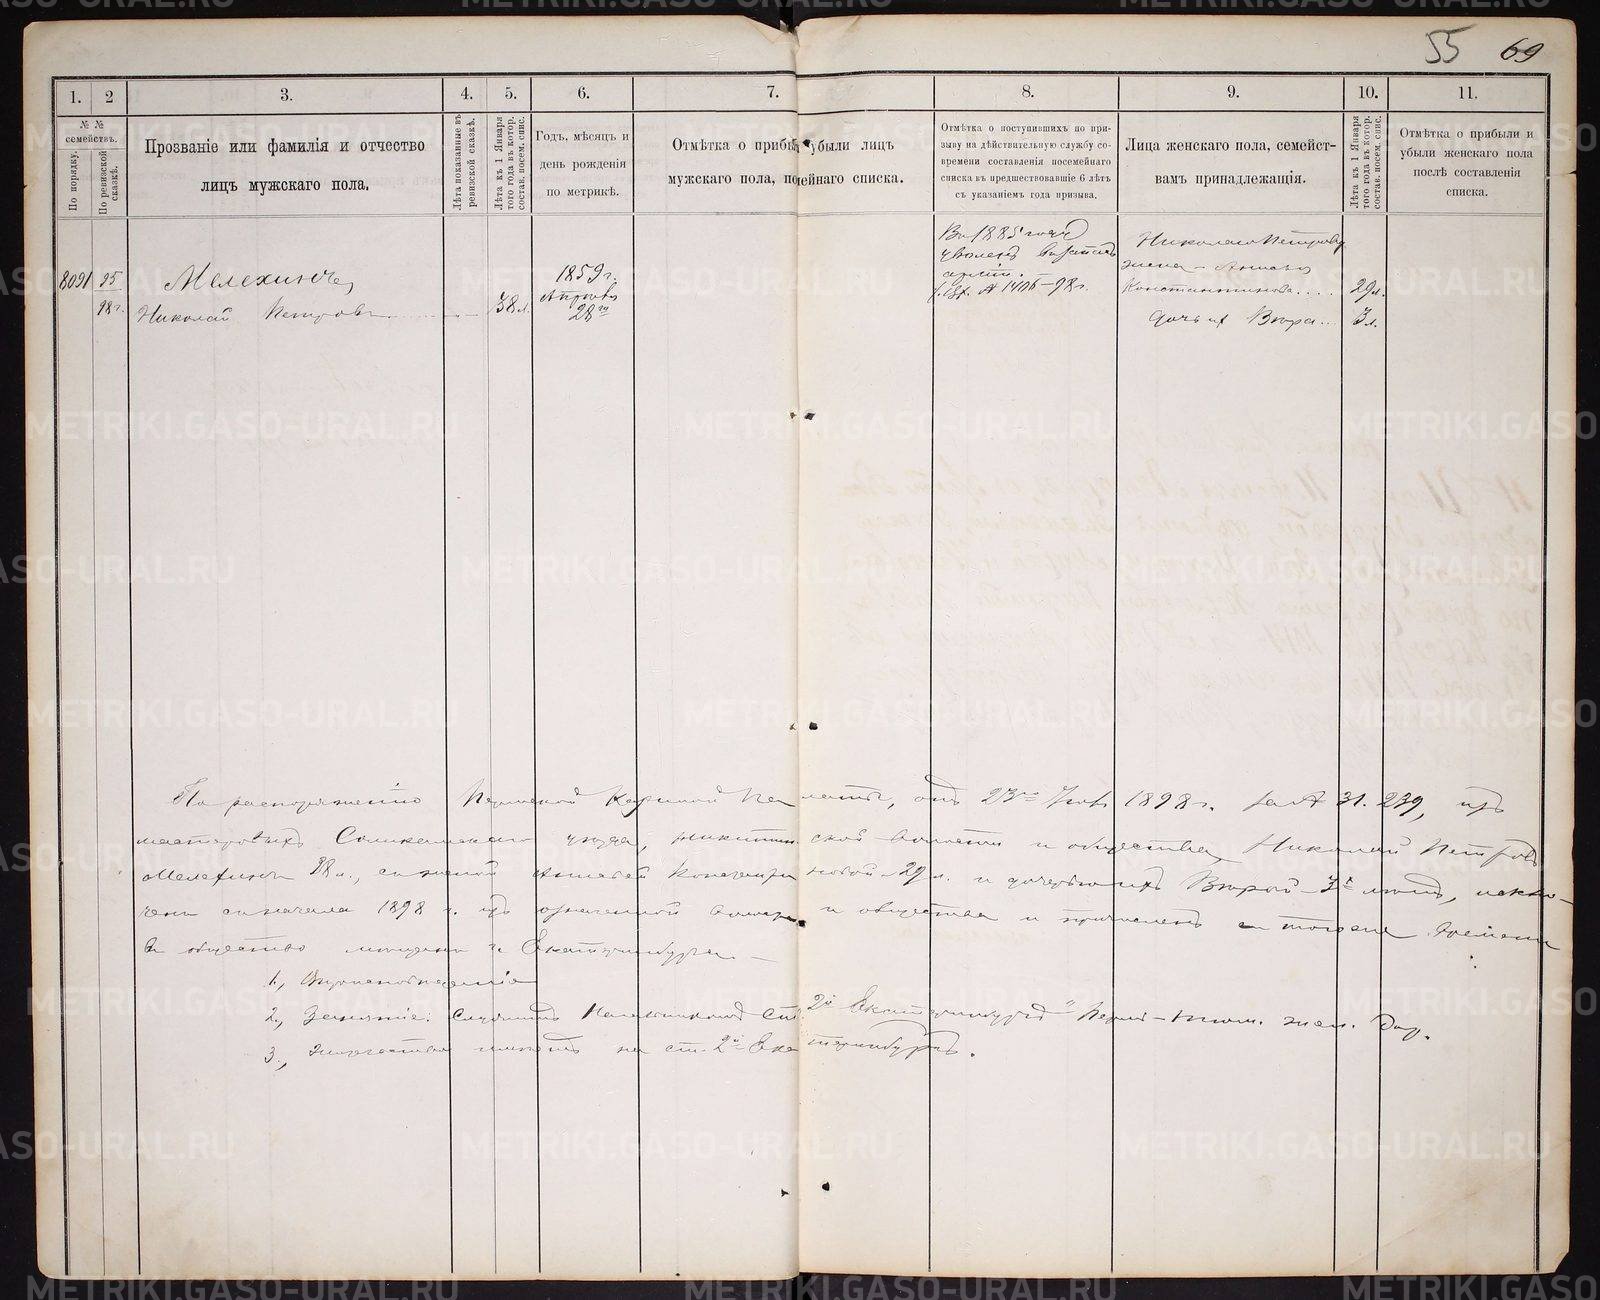 55 69
1. 2 3. 4. 5. 6. 7. 8. 9. 10. 11.
№ №
семействъ.
По порядку.
По ревизской сказкѣ.
Прозваніе или фамилія и отчество
лицъ мужскаго пола.
Лѣта показанные въ
ревизской сказкѣ.
Лѣта къ 1 Января
того года въ котор.
состав. посем. спис.
Годъ, мѣсяцъ и
день рожденія
по метрикѣ.
Отмѣтка о приб убыли лицъ
мужскаго пола, по мейнаго списка.
Отмѣтка о поступившихъ по при-
зыву на дѣйствительную службу со-
времени составленія посемейнаго
списка въ предшествовавшіе 6 лѣтъ
съ указаніемъ года призыва.
Лица женскаго пола, семейст-
вамъ принадлежащія.
Лѣта къ 1 Января
того года въ котор.
состав. посем. спис.
Отмѣтка о прибыли и
убыли женскаго пола
послѣ составленія
списка.
8091 95
98 г.
Мелехинъ,
Николай Петровъ
38 л.
1859 г.
Апрѣля
28го
Въ 1885 году
уволенъ въ запасъ
арміи.
№ 1406-98 г.
Николая Петрова
жена - 
Константинова.... 29 л.
дочь их Вѣра... 3 л.
По распоряженію Пермской Казенной Палаты, отъ 23го 1898 г. за № 31.239, изъ
мастеровыхъ Соликамскаго уѣзда, скої волости и общества, Николай Петровъ
Мелехинъ 38 л., съ женой Константиновой 29 л. и дочерью ихъ Вѣрой 3х лѣтъ, исклю-
чены съ начала 1898 г. изъ означенной волости и общества и причислены съ того же времени
въ общество мѣщанъ г. Екатеринбурга.
1, Вѣроисповѣданіе
2, Занятіе: Служитъ Начальникомъ Ст. 2й "Екатеринбургъ" Пермь-Тюм. жел. дор.
3, Жительство имѣетъ на ст. 2й Екатеринбургъ.
METRIKI.GASO-URAL.RU